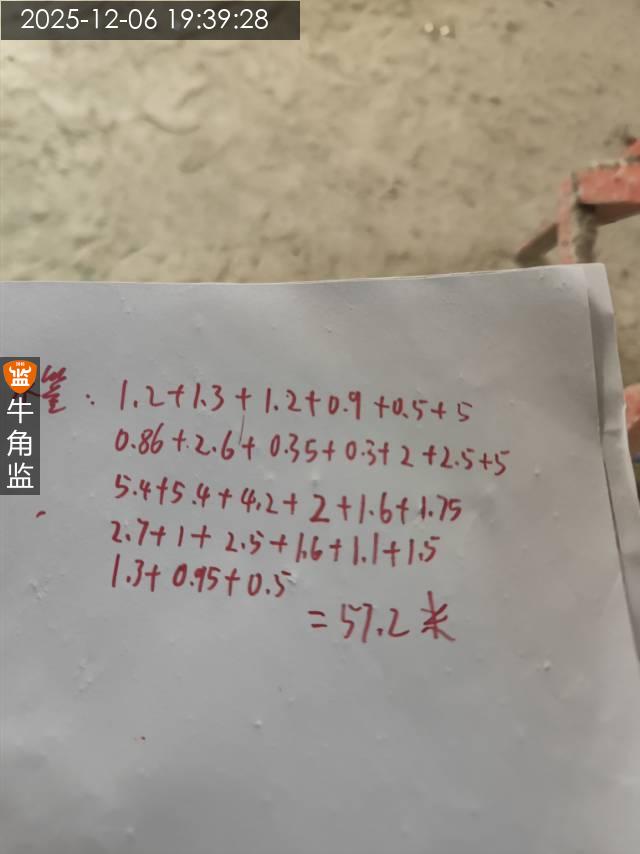 2025-12-06 19:39:28
管：1.2+1.3+1.2+0.9+0.5+5
0.86+2.6+0.35+0.3+2+2.5+5
5.4+5.4+4.2+2+1.6+1.75
2.7+1+2.5+1.6+1.1+1.5
1.3+0.95+0.5
=57.2米
监
牛角监